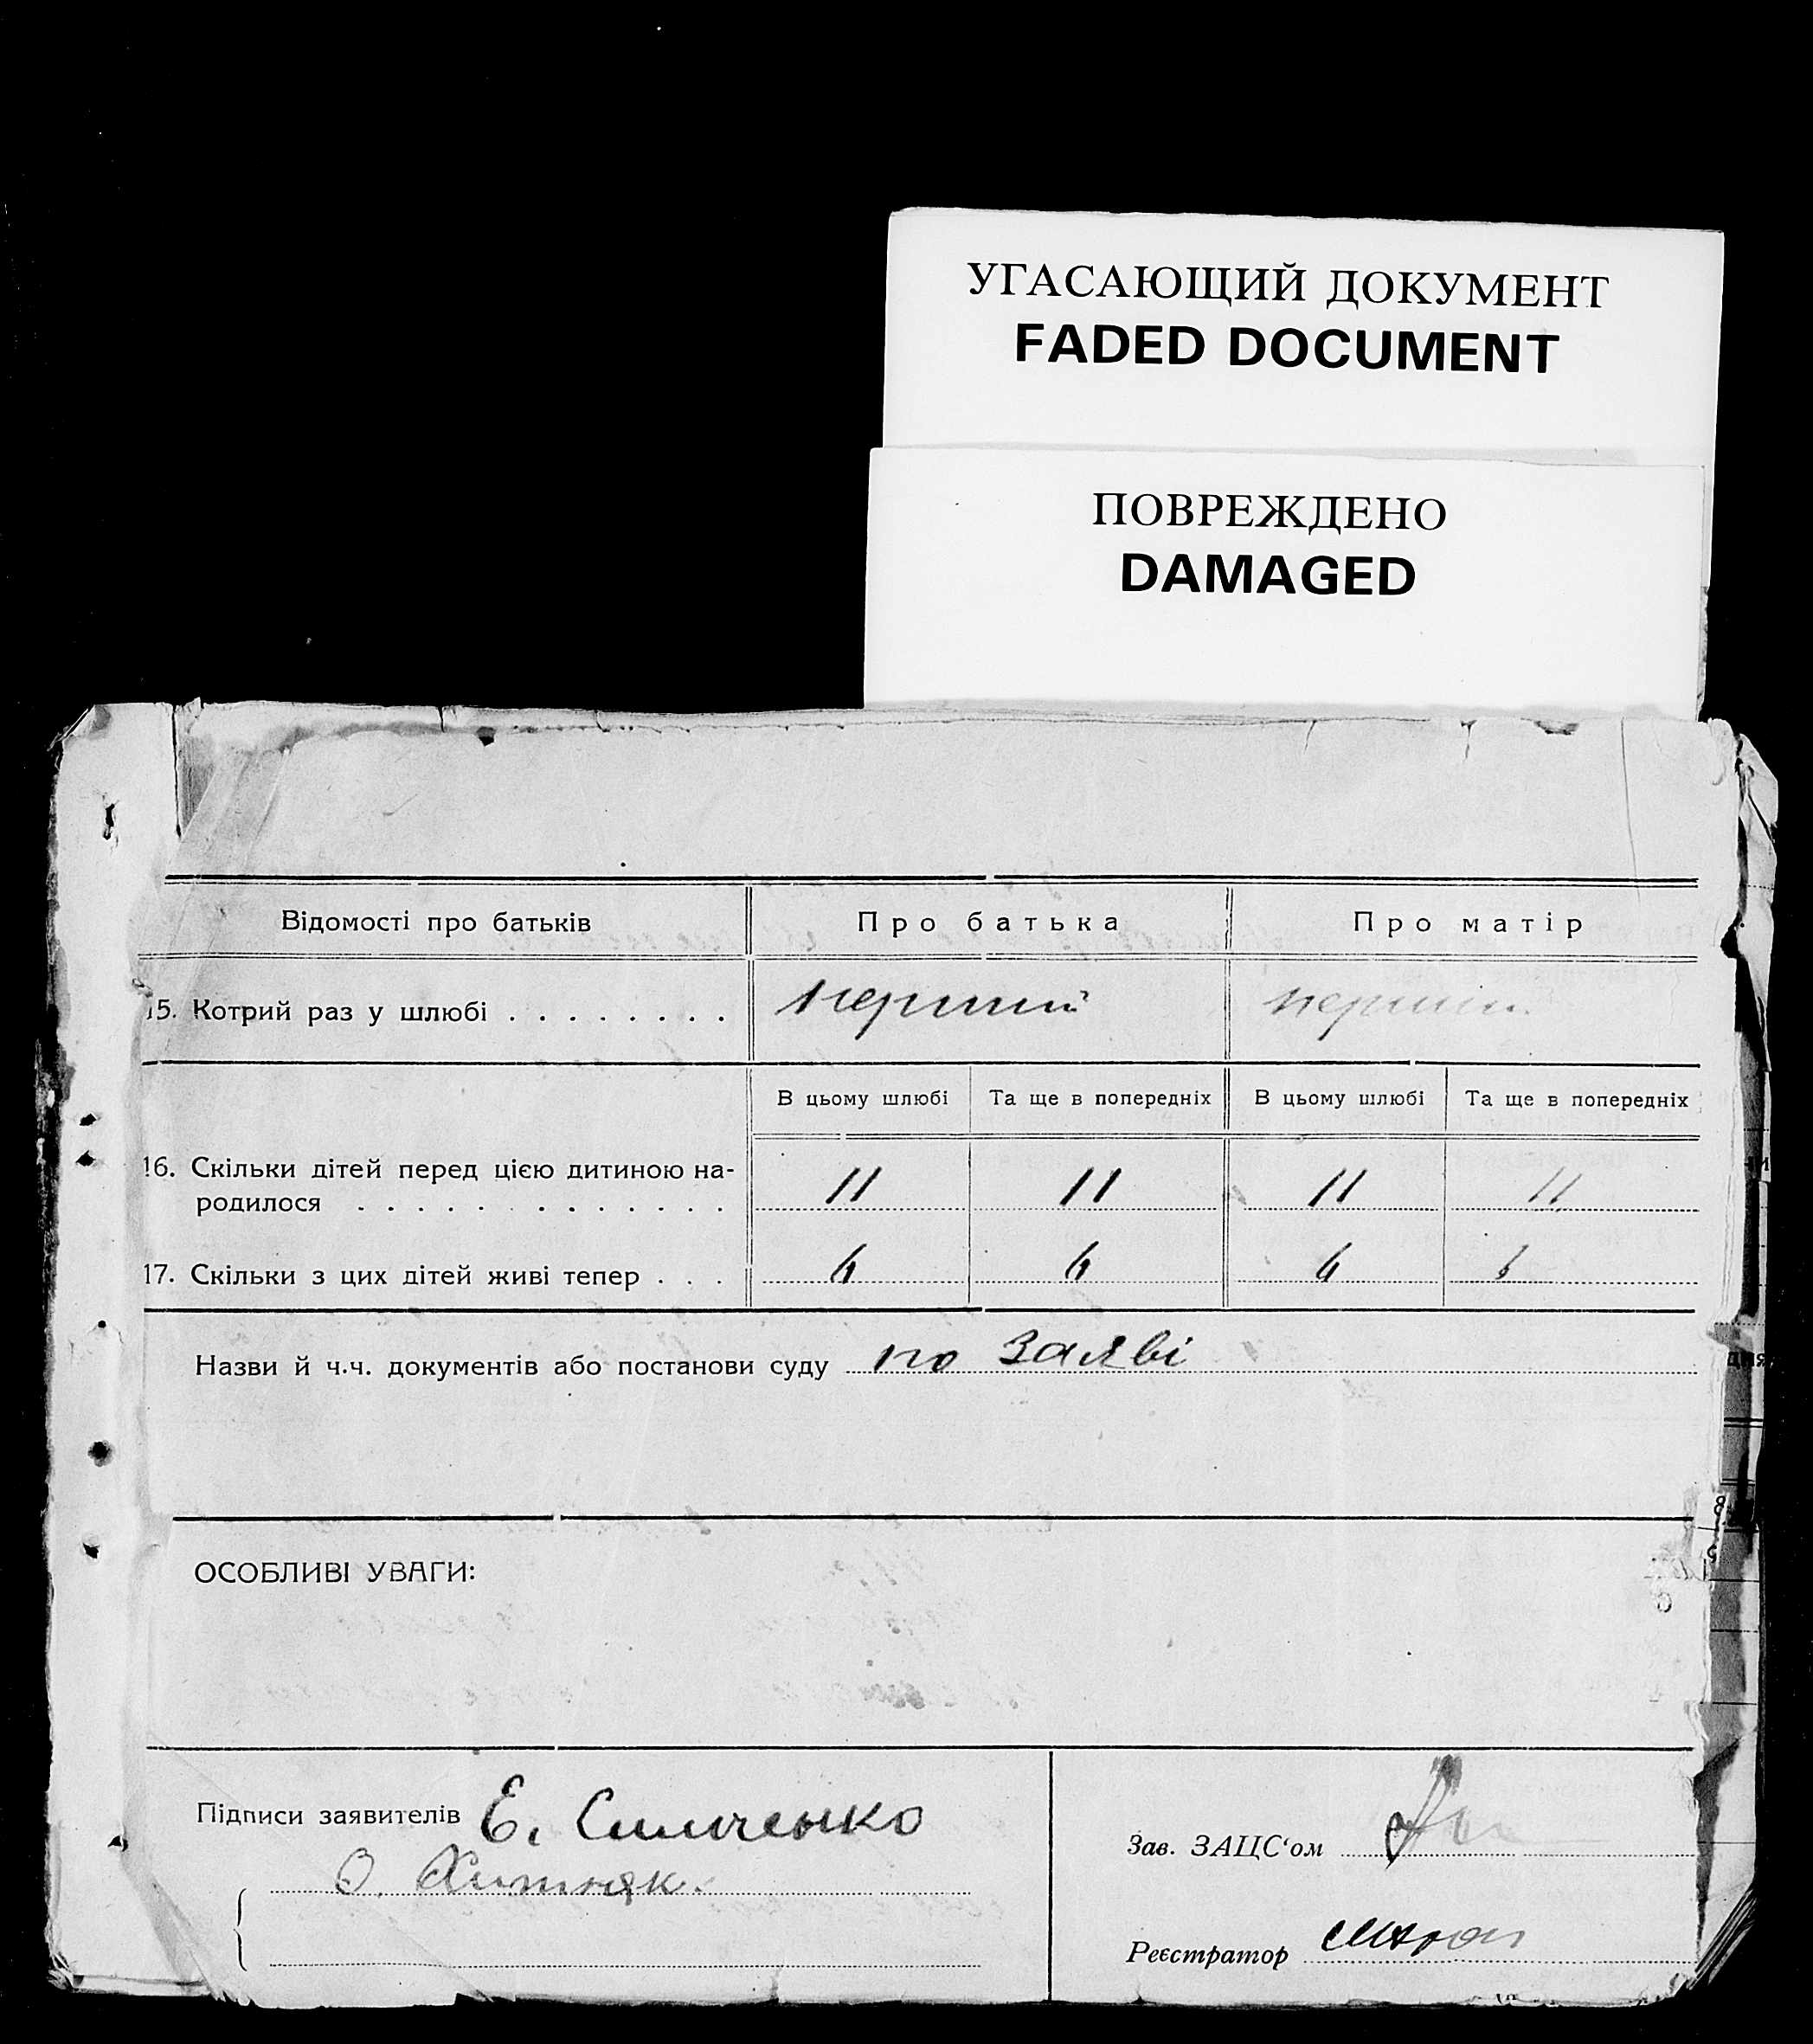 УГАСАЮЩИЙ ДОКУМЕНТ
FADED DOCUMENT
ПОВРЕЖДЕНО
DAMAGED
Відомості про батьків Про батька Про матір
15. Котрий раз у шлюбі . . . . . . . . перший перший
В цьому шлюбі Та ще в попередніх В цьому шлюбі Та ще в попередніх
16. Скільки дітей перед цією дитиною на-
родилося . . . . . . . . . . . . . 11 11 11 11
17. Скільки з цих дітей живі тепер . . . 6 6 6 6
Назви й ч.ч. документів або постанови суду по заяві
ОСОБЛИВІ УВАГИ:
Підписи заявителів Є.
О. Хитняк.
Зав. ЗАЦС‘ом
Реєстратор